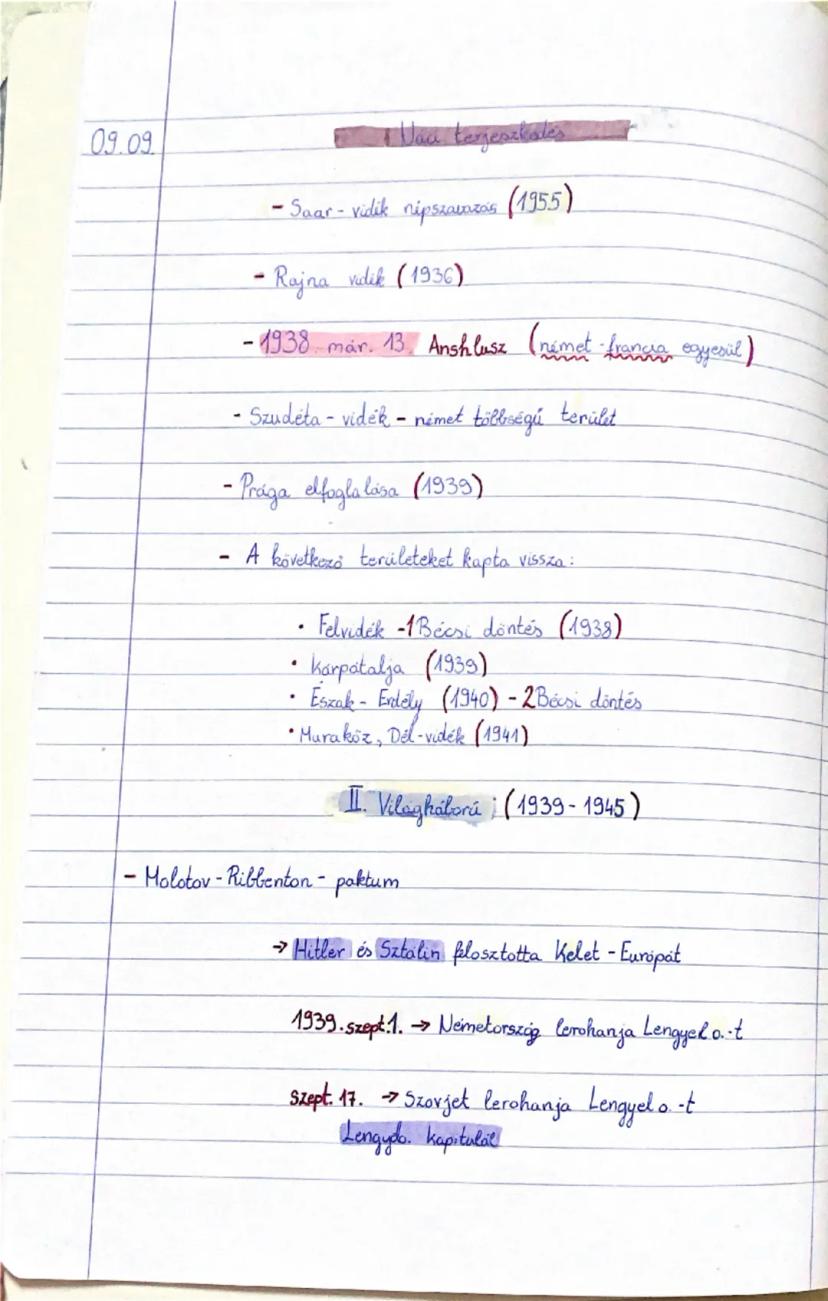 09.09.
Náci terjeszkedés
- Saar-vidék népszavazás (1955)
- Rajna vidék (1936)
- 1938. már. 13. Anshlusz (német-francia egyesül)
- Szudéta-vidék - német többségű terület
- Prága elfoglalása (1939)
- A következő területeket kapta vissza:
• Felvidék -1 Bécsi döntés (1938)
• Kárpátalja (1939)
• Észak-Erdély (1940) - 2 Bécsi döntés
• Muraköz, Dél-vidék (1941)
II. Világháború (1939-1945)
- Molotov-Ribbenton-paktum
→ Hitler és Sztálin felosztotta Kelet-Európát
1939. szept. 1. → Németország lerohanja Lengyelo.-t
szept. 17. → Szovjet lerohanja Lengyelo.-t
Lengyelo. kapitulál